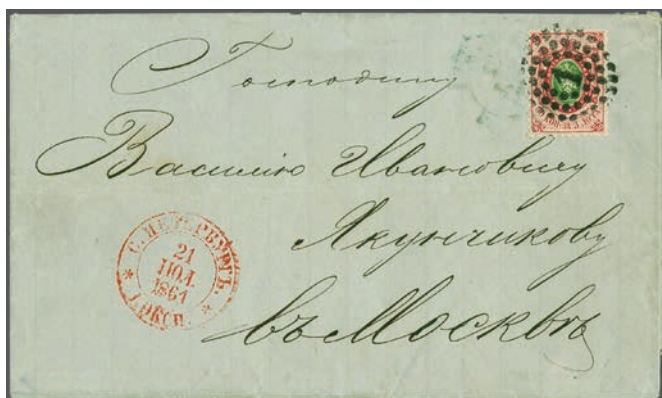 Господину
Василию Ивановичу
Якунчикову
въ Москвѣ
С. ПЕТЕРБУРГЪ.
21
ПОЛ.
1861
1